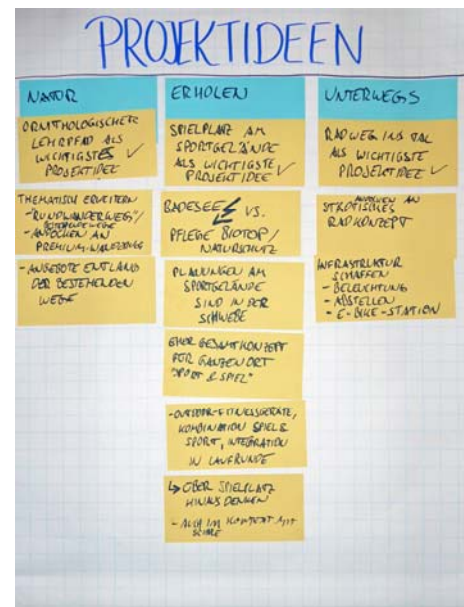 PROJEKTIDEEN
NATUR
ORNITHOLOGISCHER
LEHRPFAD ALS
WICHTIGSTES ✓
PROJEKTIDEE
THEMATISCH ERWEITERN
- "RUNDWANDERWEG"/
BESTEHENDE WEGE
- ANDOCKEN AN
PREMIUM-WANDERWEG
- ANGEBOTE ENTLANG
DER BESTEHENDEN
WEGE
ERHOLEN
SPIELPLATZ AM
SPORTGELÄNDE
ALS WICHTIGSTE ✓
PROJEKTIDEE
BADESEE VS.
PFLEGE BIOTOP/
NATURSCHUTZ
PLANUNGEN AM
SPORTGELÄNDE
SIND IN DER
SCHWEBE
EHER GESAMTKONZEPT
FÜR GANZEN ORT
"SPORT & SPIEL"
- OUTDOOR-FITNESSGERÄTE,
KOMBINATION SPIEL &
SPORT, INTEGRATION
IN LAUFRUNDE
↳ ÜBER SPIELPLATZ
HINAUS DENKEN
- AUCH IM KONTEXT MIT
UNTERWEGS
RADWEG INS TAL
ALS WICHTIGSTE
PROJEKTIDEE ✓
ANDOCKEN AN
STÄDTISCHES
RADKONZEPT
INFRASTRUKTUR
SCHAFFEN
- BELEUCHTUNG
- ABSTELLEN
- E-BIKE-STATION